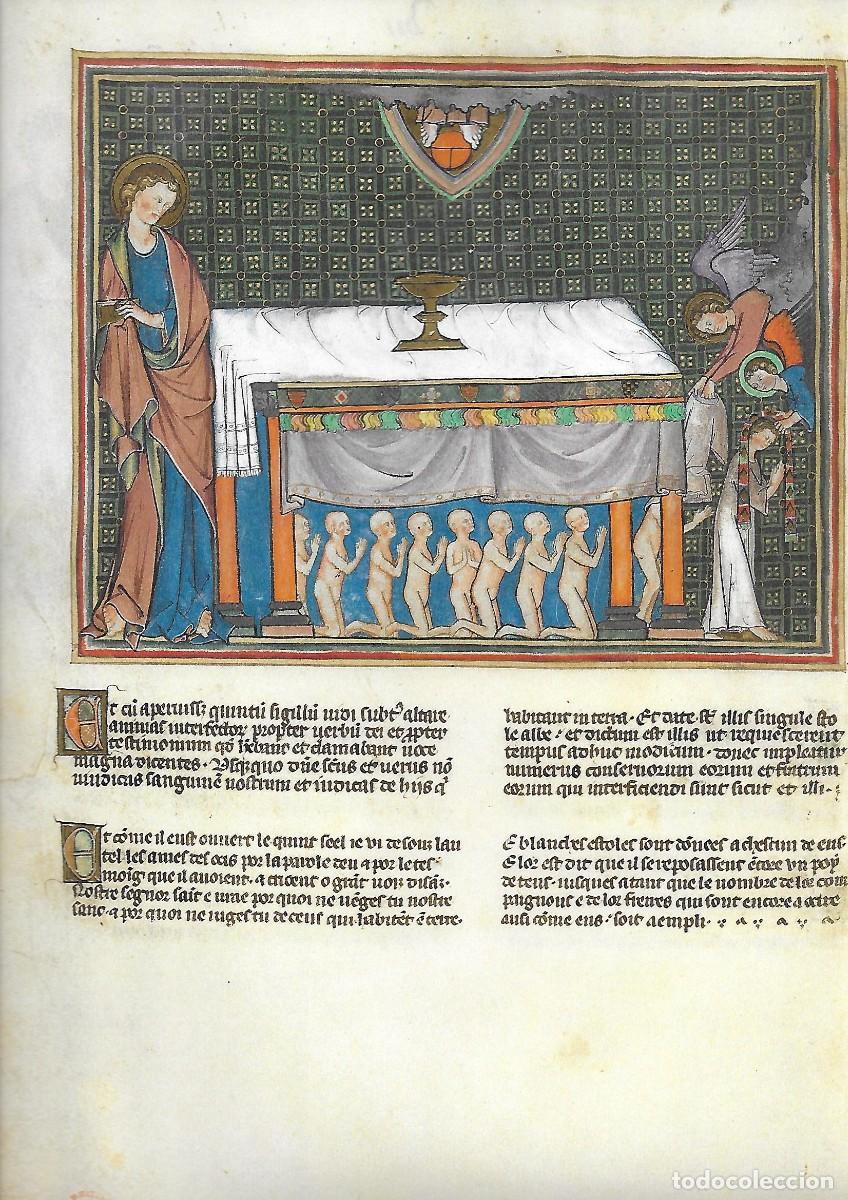 Et cū aperuiss; quintū sigillū vidi subt' altare
animas interfector' propter verbū dei et ꝓpter
testimonium qō hēbant et clamabant voce
magna dicentes · Vsq;quo dn̄e sc̄us et verus nō
vindicas sanguinem nostrum et iudicas de hiis q'
habitant in terra · Et date st̄ illis singule sto
le albe · et dictum est illis ut requiescerent
tempus adhuc modicum · donec impleatur
numerus conseruorum eorum et fratrum
eorum qui interficiendi sunt sicut et illi ·
Et cōme il eust ouuert le quint seel ie vi de souz lau
tel les ames des ocis por la parole deu ⁊ por le tes
moig que il auoient · ⁊ crient o grāt uoiz disāz·
Nostre segnor saīt e urai por quoi ne uēges tu nostre
sanc · ⁊ por quoi ne iuges tu de ceus qui habitēt ē terre ·
E blanches estoles sont dōnees a chescun de eus·
E lor est dit que il se reposassent ēcore vn poy
de tens · iusques a tant que le nombre de lor com
paignons e de lor freres qui sont encore a ocire
ausi cōme eus · soit aempli ·
todocoleccion